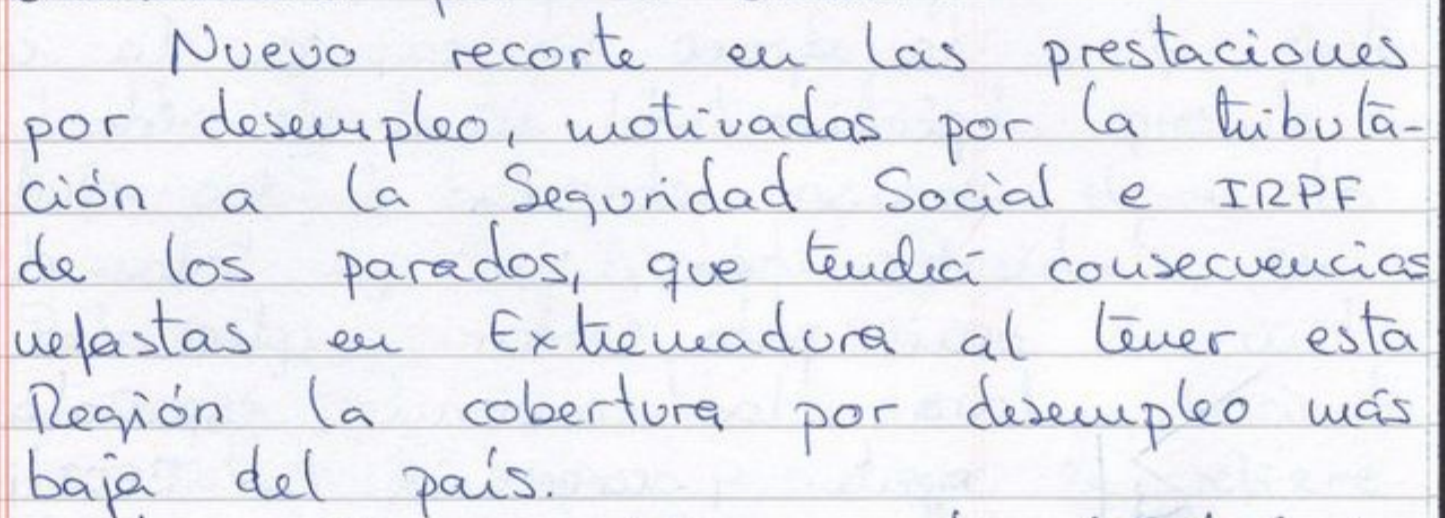 Nuevo recorte en las prestaciones
por desempleo, motivadas por la tributa-
ción a la Seguridad Social e IRPF
de los parados, que tendrá consecuencias
nefastas en Extremadura al tener esta
Región la cobertura por desempleo más
baja del país.